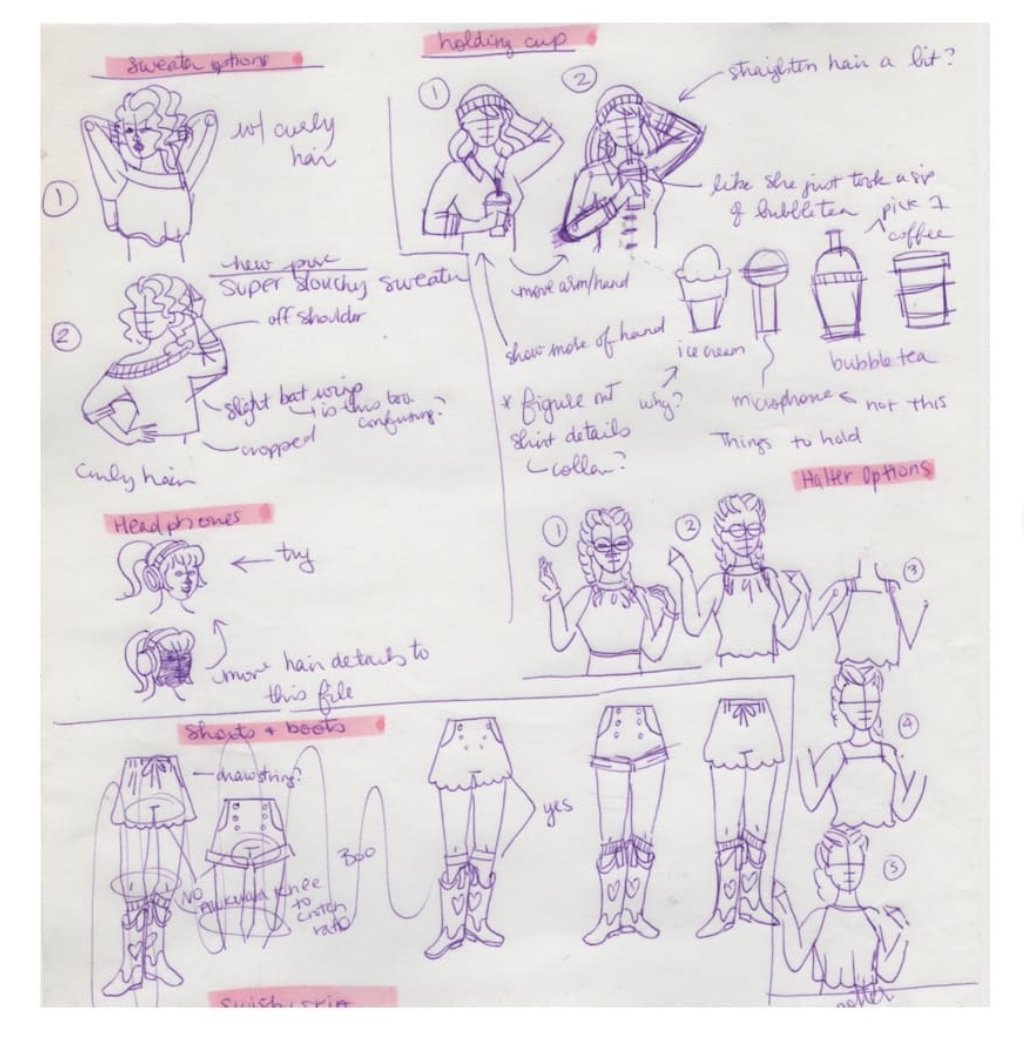 sweater options
1
w/ curly
hair
new pose
super slouchy sweater
off shoulder
2
slight bat wing
is this too
confusing?
cropped
curly hair
Headphones
try
more hair details to
this file
holding cup
1
2
straighten hair a bit?
like she just took a sip
of bubble tea
pick 1
coffee
move arm/hand
show more of hand
ice cream
bubble tea
why?
microphone
not this
Things to hold
* figure out
shirt details
collar?
Halter Options
1
2
3
4
5
Shorts + boots
drawstring?
NO
Awkward knee
to
crotch
ratio
Boo
yes